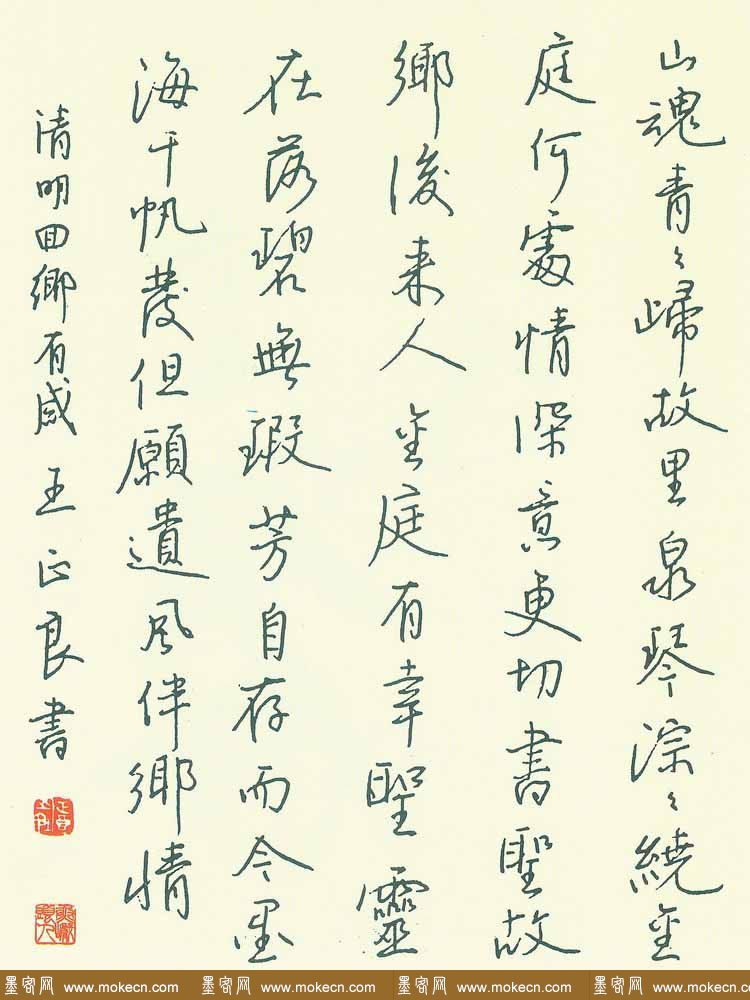 山魂青々歸故里泉琴淙々繞金
庭何處情深意更切書聖故
鄉後来人金庭有幸聖靈
在落碧無瑕芳自存而今墨
海千帆發但願遺風伴鄉情
清明回鄉有感王正良書
墨客网 www.mokecn.com 墨客网 www.mokecn.com 墨客网 www.mokecn.com 墨客网 www.mokecn.com 墨客网